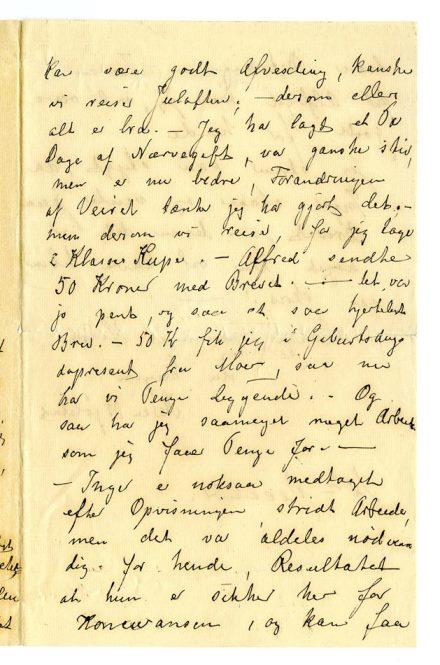 kan være godt Afvexling, kanske
vi reiser Juleaften; – dersom ellers
alt er bra. – Jeg har lagt et Par
Dage af Nærvegift, var ganske stiv,
men er nu bedre, Forandringen
af Veiret tænke jeg har gjort det. –
men dersom vi reise, faar jeg tage
2 Klasses Kupe. – Alfred sendte
50 Kroner med Brevet. – det var
jo pent, og saa et saa hjerteligt
Brev. – 50 Kr fik jeg i Geburtsdags
dapresent fra Moer, saa nu
har vi Penge liggende. – Og
saa har jeg saameget meget Arbeide
som jeg faaer Penge for. –
– Inga er noksaa medtaget
efter Opvisningen stridt Arbeide,
men det var aldeles nødven
dig for hende, Resultatet
at hun er sikker her for
og kan faa